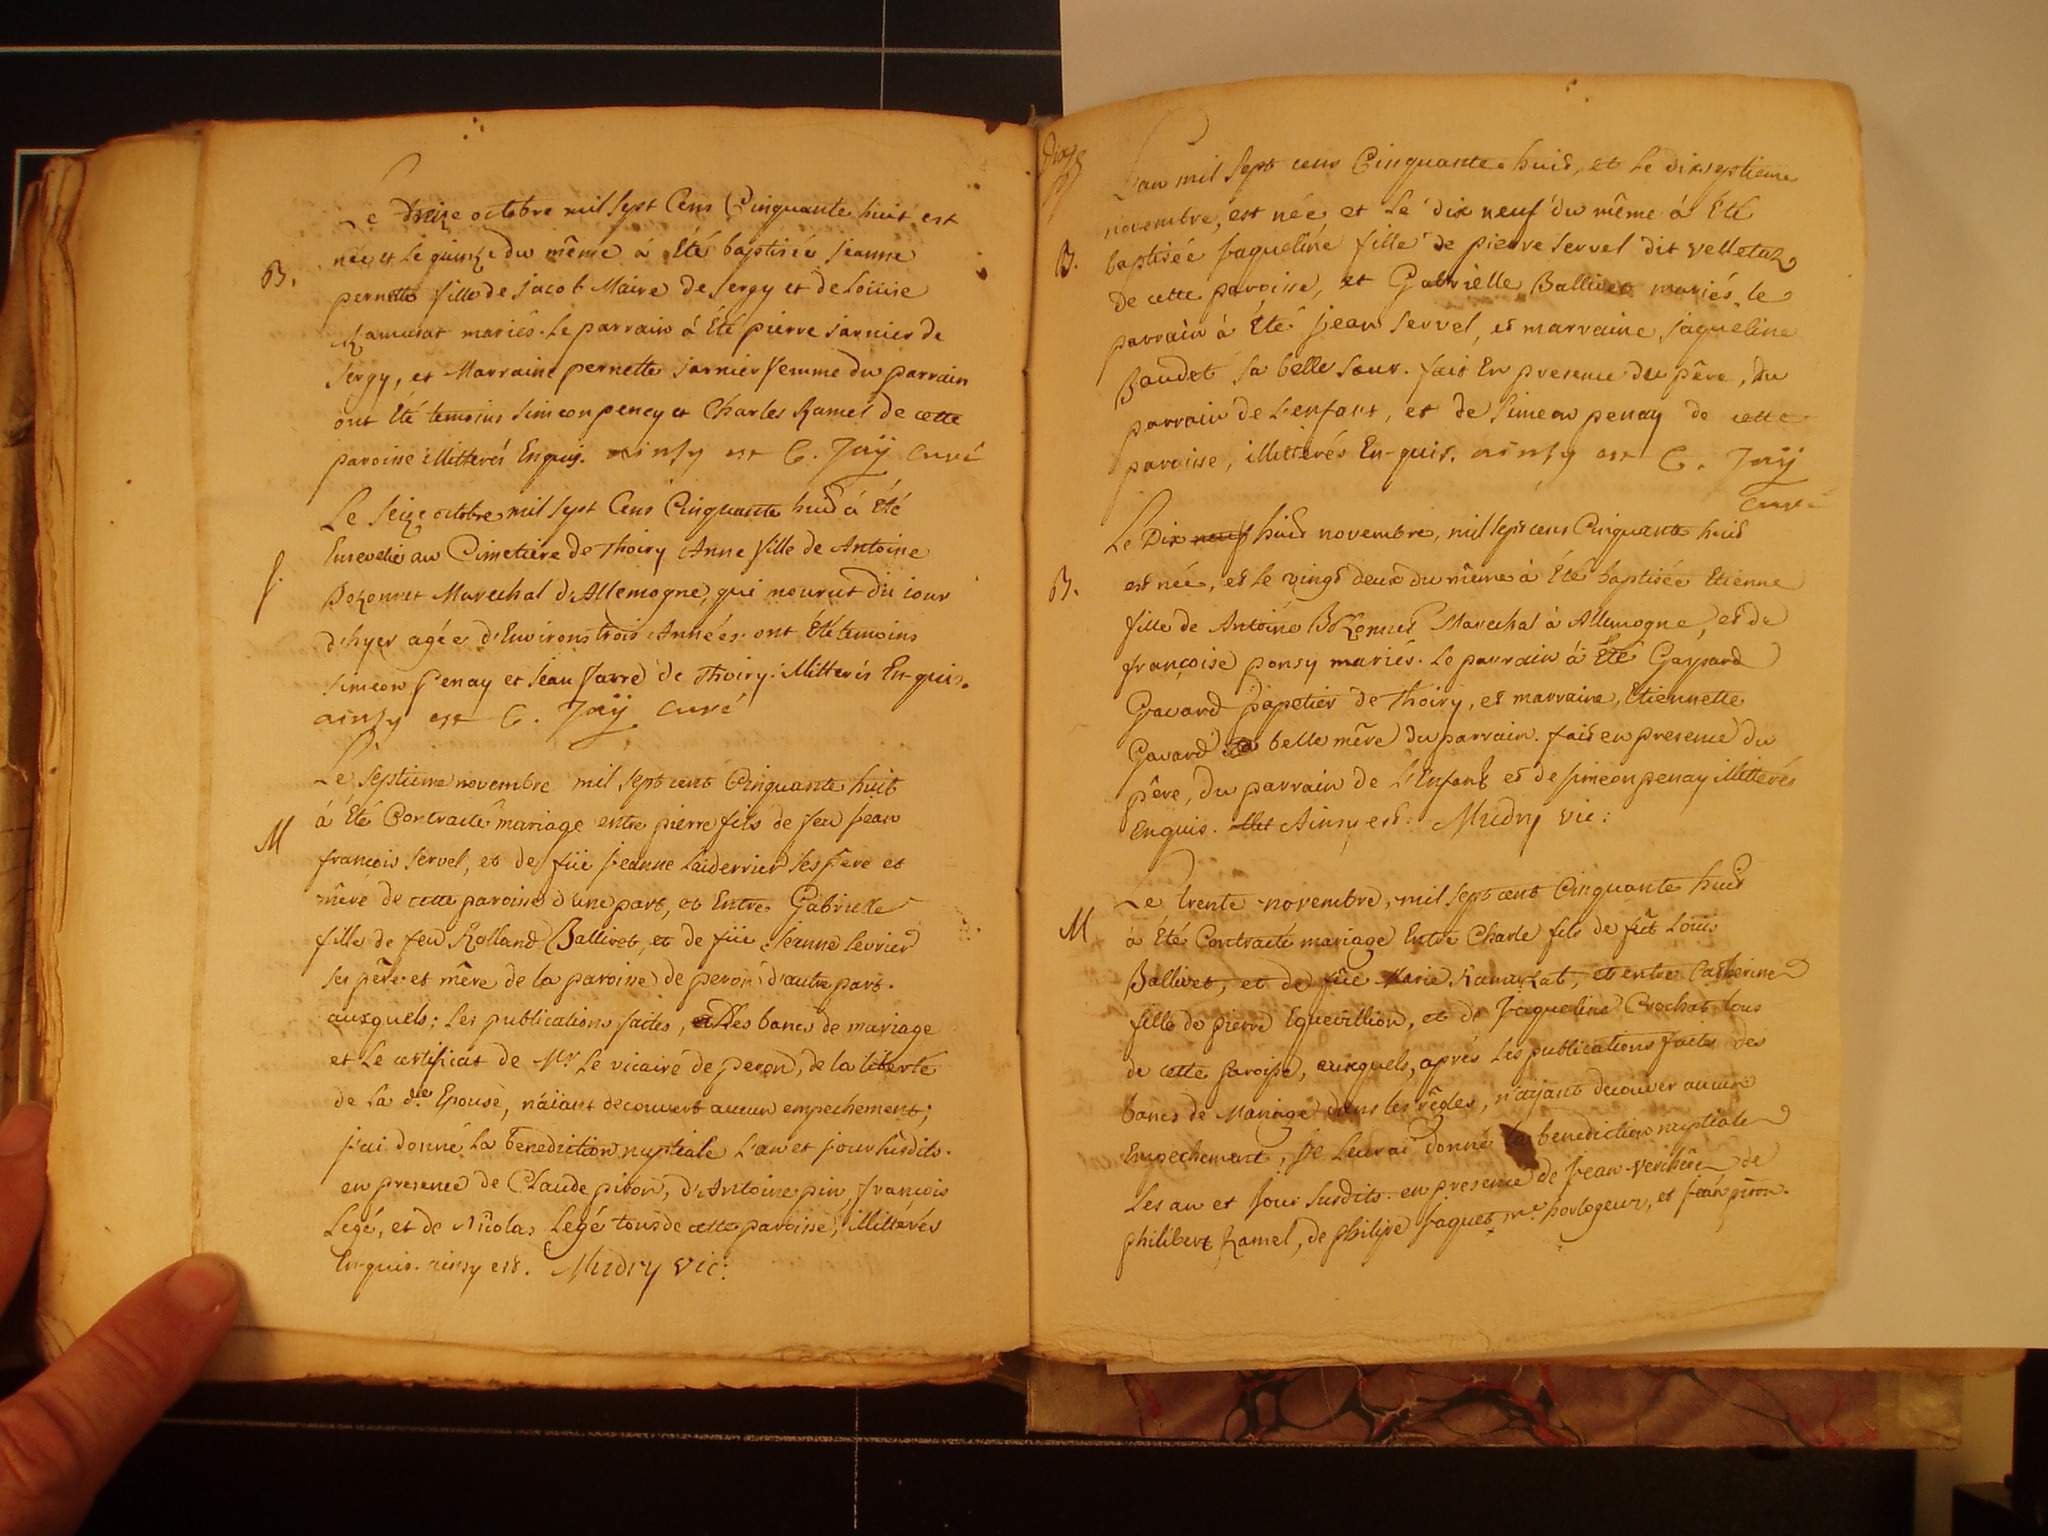 Le treize octobre mil sept Cens Cinquante huit est
née et le quinze du même à été baptisée jeanne
B.
pernette fille de jacob Maire de Sergy et de Loüise
Ramusat mariés. Le parrain à Eté pierre jarnier de
Sergy, et Marraine pernette jarnier femme du parrain
ont Eté temoins Simeon penay et Charles Ramel de cette
paroisse illitterés Enquis. ainsy est C. Jaÿ curé
Le Seize octobre mil Sept Cens Cinquante huit à Eté
Ensevelie au Cimetière de Thoiry Anne fille de Antoine
S.
Bozonnet Marechal d'Allemogne, qui mourut du jour
d'hyer agée d'Environs trois Années. ont Eté temoins
Simeon penay et Jean farre de Thoiry. illitterés Enquis.
ainsy est C. Jaÿ curé
Le Septieme novembre mil sept cent Cinquante huit
à Eté Contracté mariage entre pierre fils de feu jean
M
françois Servel, et de füe jeanne Laiderrier Ses père et
mère de cette paroisse d'une part, et Entre Gabrielle
fille de feu Rolland Ballivet, et de füe Jeanne levrier
Ses père et mère de la paroisse de peron d'autre part.
auxquels; Les publications faites, des bancs de mariage
et Le certificat de Mr. Le vicaire de peron, de la liberté
de La dte. Epouse, n'aïant decouvert aucun empechement;
j'ai donné La benediction nuptiale L'an et jour Susdits.
en presence de Claude piron, d'Antoine pin, françois
Legé, et de Nicolas Legé tous de cette paroisse, illittérés
Enquis. ainsy est. Mudry vic:
L'an mil Sept cens Cinquante huit, et Le dixseptieme
novembre, est née et Le dix neuf du même à Eté
B.
baptisée jaqueline fille de pierre Servel dit velletaz
de cette paroisse, et Gabrielle Ballivet mariés. le
parrain à Eté jean Servel, et marraine jaqueline
Baudet sa belle Soeur. fait En presence du père, du
parrain de L'enfant, et de Simeon penay de cette
paroisse, illitterés Enquis. ainsy est C. Jaÿ
curé
Le Dix neuf huit novembre, mil sept cens Cinquante huit
B.
est née, et le vingt deux du même à Eté baptisée Etienne
fille de Antoine Bozonnet Marechal à Allemogne, et de
françoise ponsy mariés. Le parrain à Eté Gaspard
Gavard papetier de Thoiry, et marraine, Etiennette
Gavard belle mère du parrain. fait en presence du
père, du parrain de L'Enfant et de simeon penay illitterés
Enquis. Ainsy est: Mudry vic:
Le trente novembre, mil sept cent Cinquante huit
M
à Eté Contracté mariage Entre Charle fils de fût Loüis
Ballivet, et de füe Marie Ramuzat, et entre Catherine
fille de pierre Equevillion, et de Jaqueline Crochat tous
de cette paroisse, auxquels, après Les publications faites des
bancs de Mariage dans les règles, n'ayant decouver aucun
Empechement, Je Leur ai donné la benediction nuptiale
Les an et Jour Susdits. en presence de Jean verchère de
philibert Ramel, de philipe Jaquet me. horlogeur, et Jean piron.